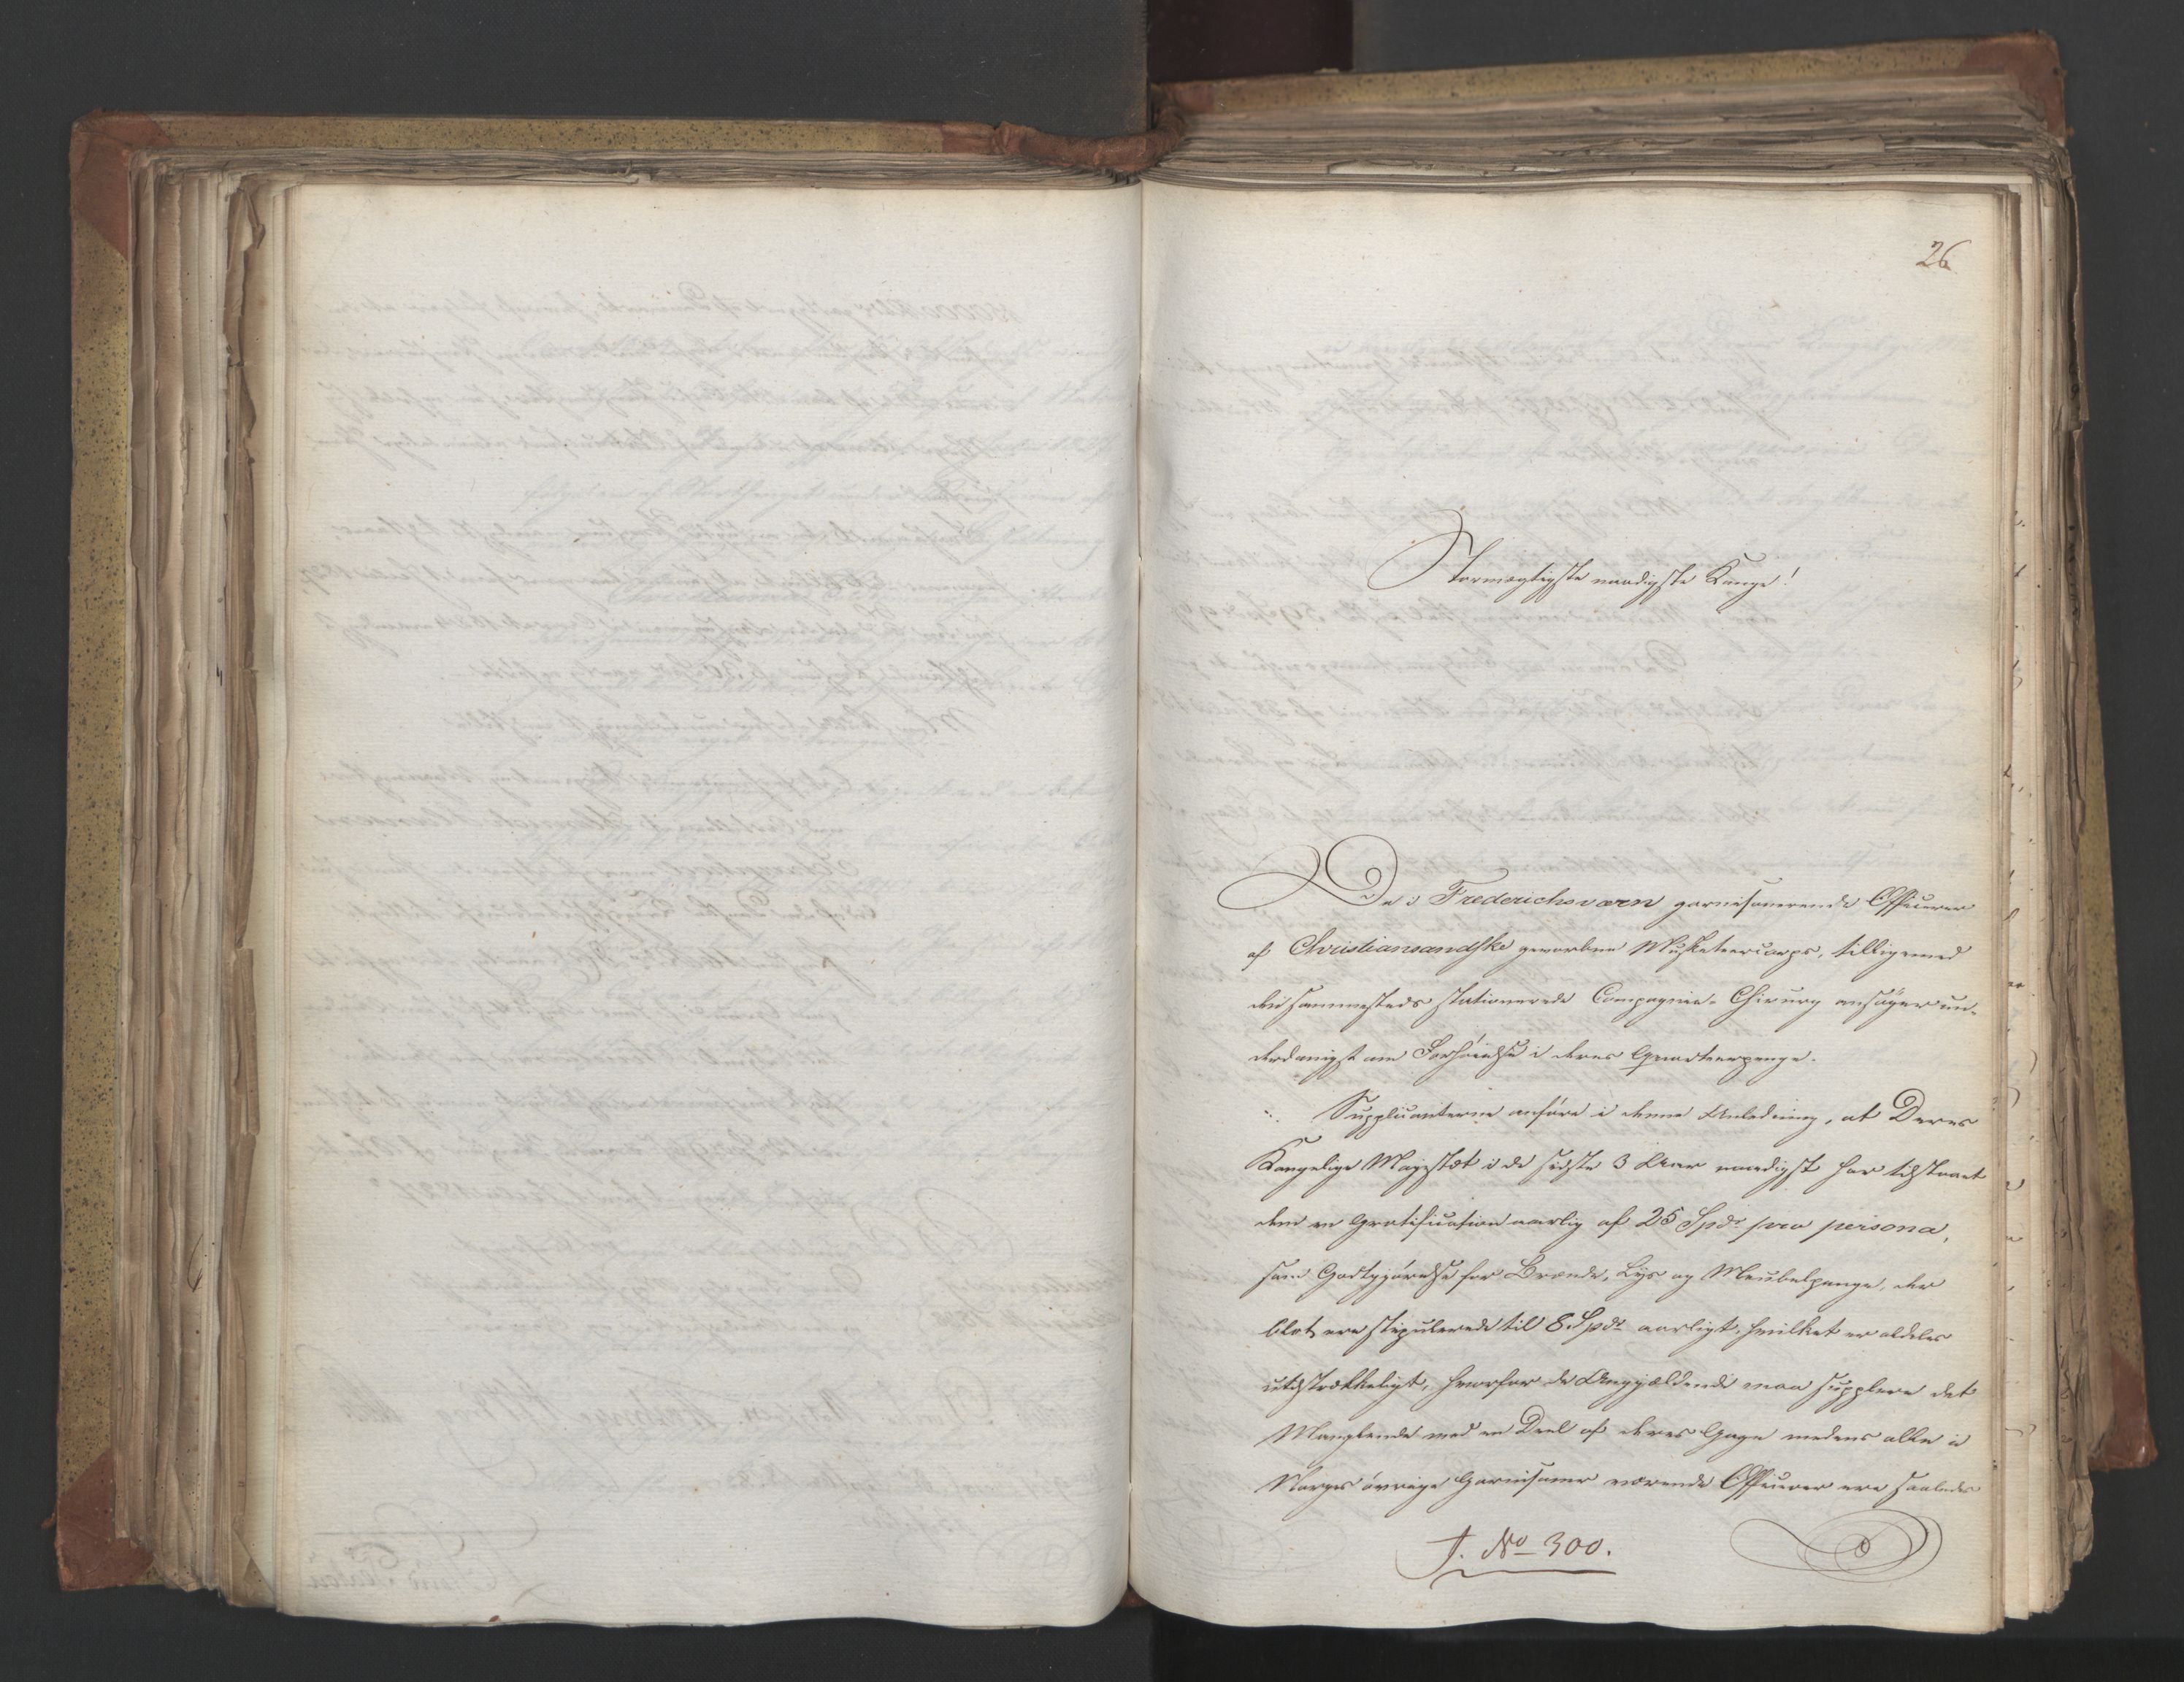 26
Stormægtigste naadigste Konge!
De i Frederichsværn garnisonerende Officerer
af Christiansandske gevorbne Musketeercorps, tilligemed
den sammesteds stationerede Compagnie-Chirurg ansøger un-
derdanigst om Forhøielse i deres Qvarteerpenge.
Supplicanterne anføre i denne Anledning, at Deres
Kongelige Majestæt i de sidste 3 Aar naadigst har tilstaaet
dem en Gratification aarlig af 25 Spdr pro persona,
som Godtgjørelse for Brænde, Lys og Meubelpenge, der
blot ere stipulerede til 8 Spdr aarligt, hvilket er aldeles
utilstrækkeligt, hvorfor de Angjældende maa supplere det
Manglende med en Deel af deres Gage medens alle i
Norges øvrige Garnisoner værende Officerer ere saaledes
J. No 300.